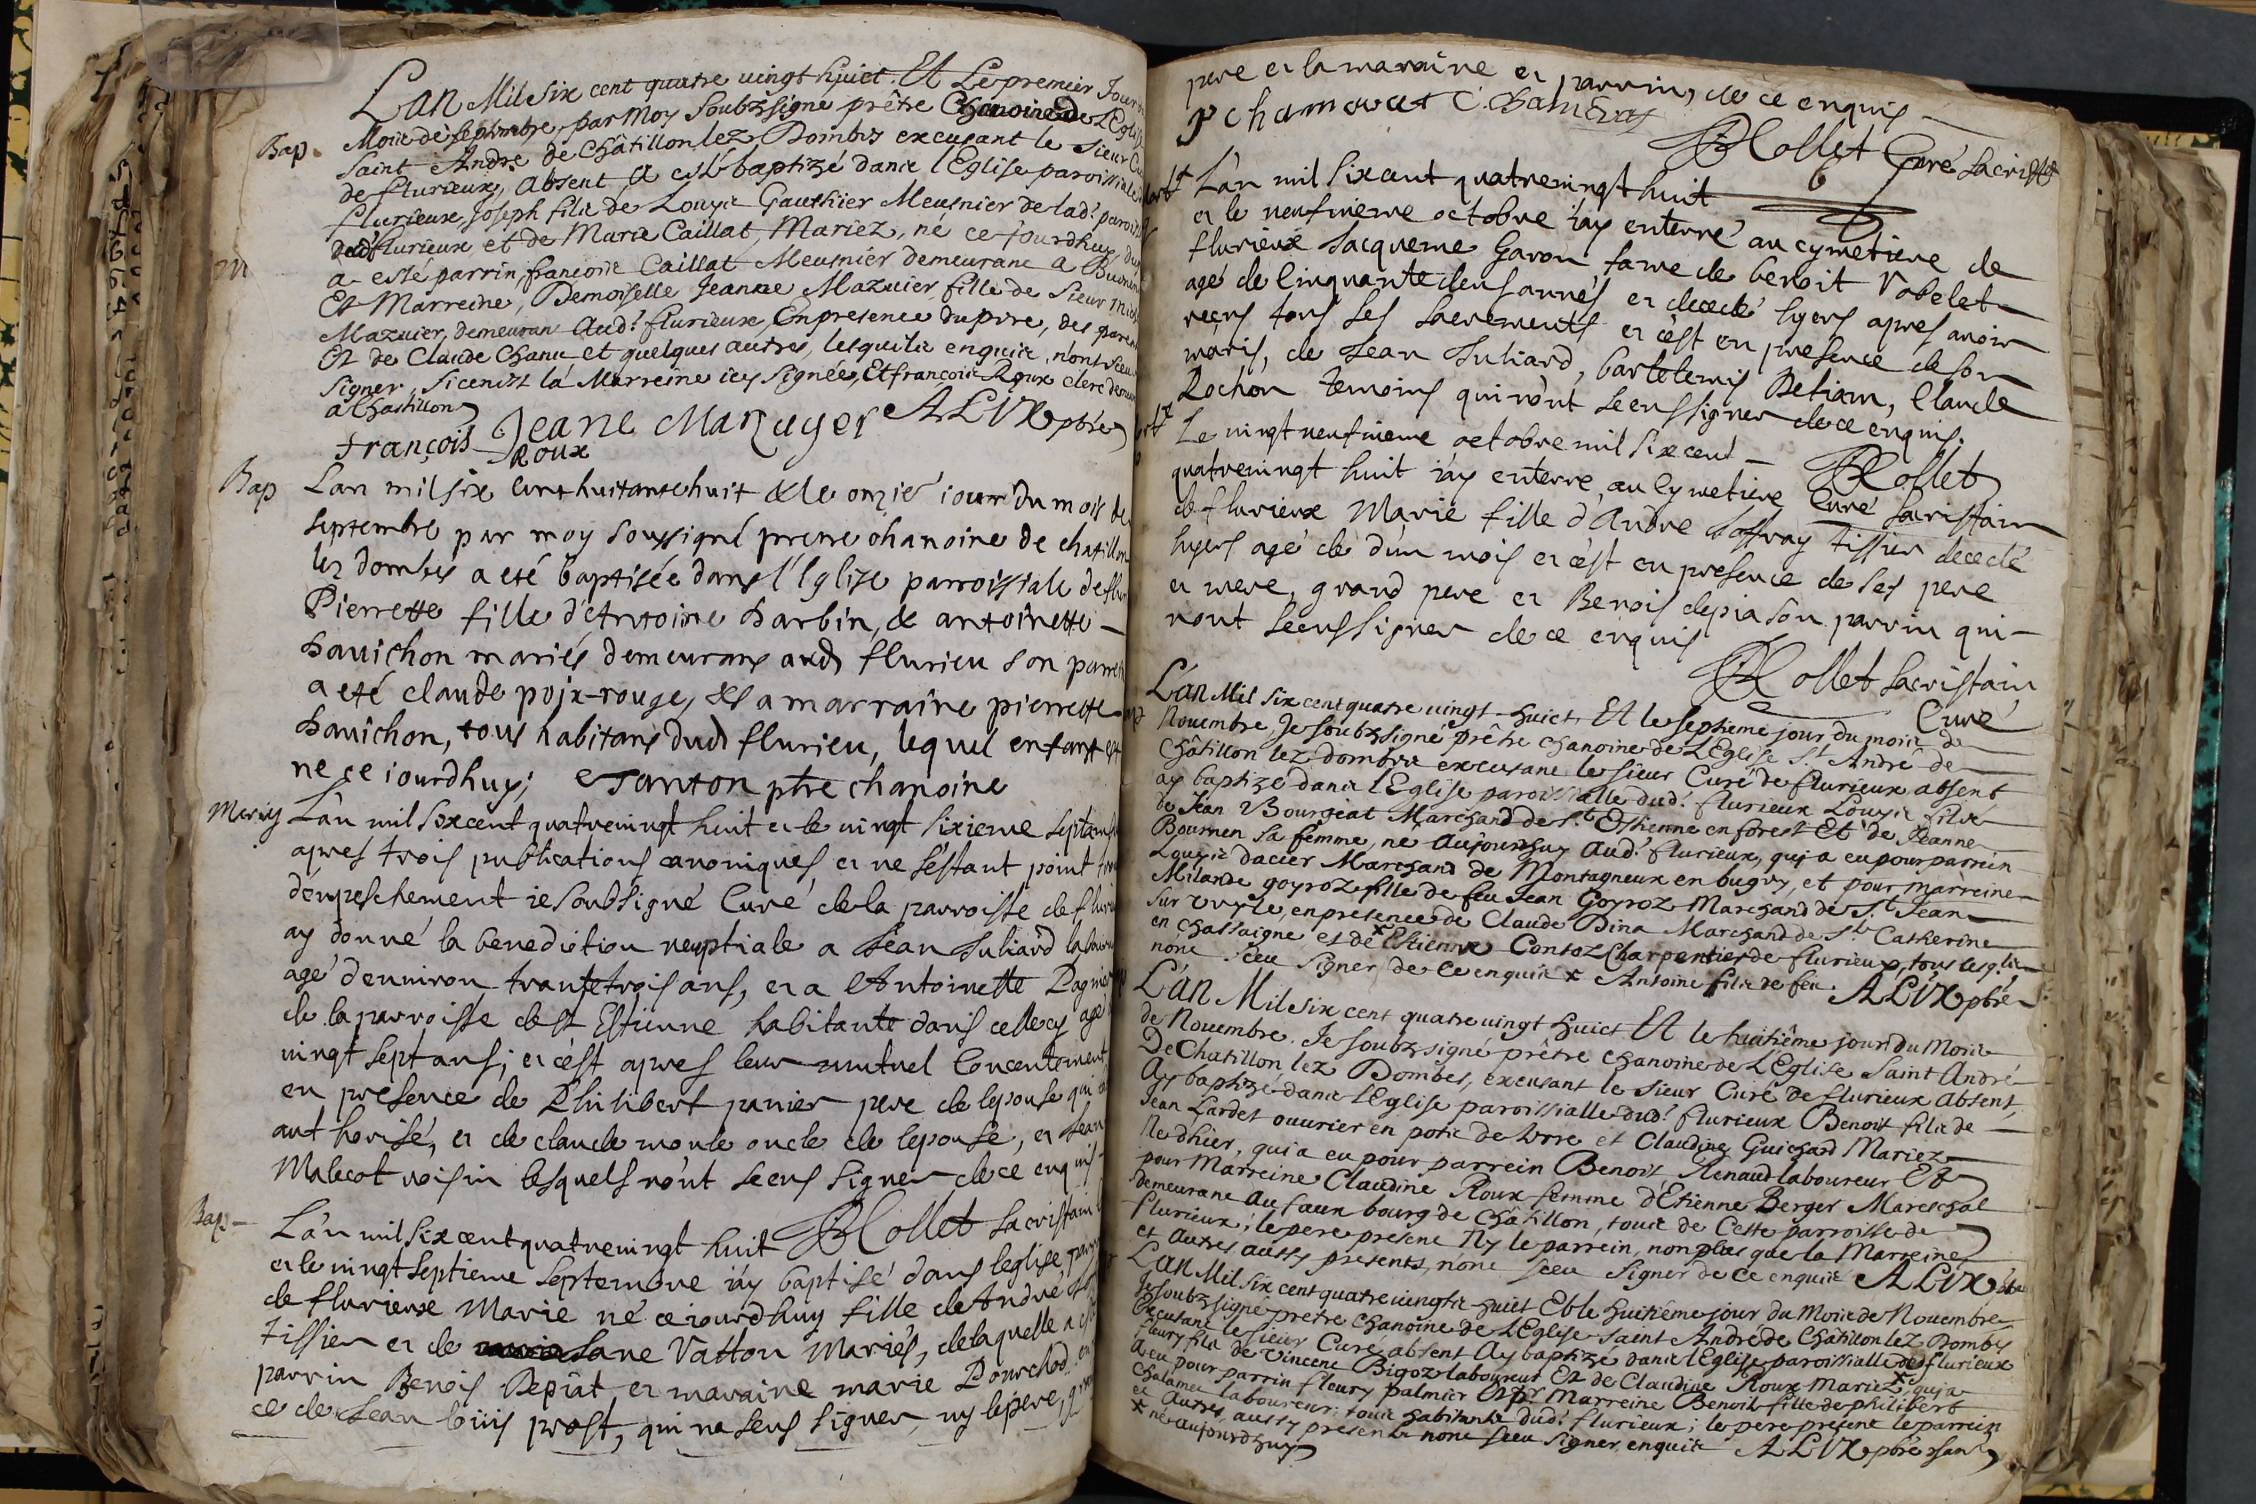 Lan Mil Six cent quatre vingt huict Et Le premier Jour
Bap. Mois de Septembre, par Moy Soubzsigné prêtre Chanoine de L'Eglise
Saint André de Châtillon lez Dombes excusant le Sieur Curé
de flurieux, Absent, A esté baptizé dans l'Eglise paroissiale
flurieux, Joseph filz de Louys Gauthier Meusnier de lad.e paroisse
dud flurieux et de Marie Caillat, Mariez, né ce jourdhuy
a esté parrin francois Caillat Meusnier demeurant a
Et Marreine, Demoiselle Jeanne Mazuier fille de Sieur
Mazuier, demeurant Aud.t flurieux, En presence du pere, des
Et de Claude Chanu et quelques autres, lesquelz enquis, n'ont sceu
Signer, sicenest la Marreine icy Signée, Et francois Roux clerc
a Chastillon
Jeane Mazuyer ALIX pbre
françois Roux
Bap Lan mil six cent huitante huit & le onzié iour du mois de
septembre par moy soussigné pretre chanoine de chatillon
lez dombes a eté baptisée dans l'Eglise parroissiale de
Pierrette fille d'Antoine barbin, & antoinette
bauichon mariés demeurans aud flurieu son
a eté claude poix-rouge, & sa marraine pierrette
bauichon, tous habitans dud flurieu, lequel enfant est
ne ce iourdhuy; Janton ptre chanoine
Lan mil sixcent quatreuingt huit et le uingt sixieme
apres trois publications canoniques, et ne s'estant point
d'enpeschement ie soubsigné Curé de la parroisse de
ay donné la benediction neuptiale a Jean Juliard
agé denuiron trante trois ans, et a Antoinette
de la parroisse de st Estienne habitante dans cellecy
uingt sept ans; et c'est apres leur mutuel Concentement
en presence de Philibert panier pere de lepouse qui
aut horisé, et de claude monte oncle de lepouse, et Jean
Malecot uoisin lesquels nont sceus signer de ce enquis
Rollet Sacristain
Bap Lan mil sixcent quatreuingt huit
et le uingt septieme septembre iay baptisé dans leglise
de flurieux Marie né ce iourdhuy fille de André
tissier et de Jane Vatton Mariés, de laquelle a esté
parrin Benois Depiat, et maraine marie
ce de Jean louis prost, qui na seus signer, ny le pere,
pere et la maraine et parrin, de ce enquis
P chamerat C. chamerat
Rollet Curé Sacristain
Lan mil sixcent quatreuingt huit
et le neufuieme octobre iay enterré au cymetiere de
flurieux Jacqueme Garon fame de benoit Vobelet
agé de Cinquante deus annés et decedé hyers apres auoir
receus tous ses sacrements et c'est en presence de son
maris, de Jean Juliard, bartelemis Betian, Claude
Rochon temoins qui nont sceus signer de ce enquis.
Rollet
Curé sacristain
Le uingt neufuieme octobre mil sixcent
quatreuingt huit iay enterre au Cymetiere
de flurieux Marie fille d'Andre tissier decedé
hyers agé de d'un mois et c'est en presence de ses pere
et mere, grand pere et Benois depia son parrin qui
nont sceus signer de ce enquis
Rollet sacristain
Curé
Lan Mil Six cent quatre uingt huict Et le septieme jour du mois de
Nouembre, Je soubzsigné prêtre chanoine de L'Eglise St André de
Châtillon lez dombes excusant le sieur Curé de flurieux absent
ay baptizé dans l'Eglise paroissialle dud.t flurieux Louys filz
de Jean Bourgeat Marchand de St Estienne en forest Et de Jeanne
Bournen sa femme, né aujourdhuy aud.t flurieux, qui a eu pour parrein
Louys dacier Marchand de Montagneux en bugey, et pour marreine
Milande goyroz fille de feu Jean Goyroz Marchand de St Jean
sur Vuyle, en presence de Claude Dina Marchand de Ste Catherine
en Chassaigne et de x Estienne Contoz Charpentier de flurieux, tous lesq.lz
nont sceu signer de ce enquis x Antoine filz de feu. ALIX pbre
L'an Mil Six cent quatre uingt huict Et le huitiême jour du Mois
de Nouembre. Je soubzsigné prêtre chanoine de L'Eglise Saint André
De Chatillon lez Dombes, excusant le Sieur Curé de flurieux Absent,
Ay baptizé dans l'Eglise paroissialle dud.t flurieux Benoit filz de
Jean Lardet ouurier en potz de terre et Claudine Guichard Mariez
Né dhier, qui a eu pour parrein Benoit Renaud laboureur Et
pour Marreine Claudine Roux femme d'Etienne Berger Mareschal
demeurant au faux bourg de Châtillon, tous de Cette parroisse de
flurieux; le pere present Ny le parrein, non plus que la Marreine
et autres aussy presents, nont sceu signer de ce enquis ALIX pbre
Lan Mil Six cent quatreuingtz huict Et le huitiême jour du Mois de Nouembre
Je soubzsigné prêtre Chanoine de L'Eglise Saint André de Châtillon lez Dombes
Excusant le sieur Curé absent Ay baptizé dans l'Eglise paroissialle de flurieux
fleury filz de Vincent Bigoz laboureur Et de Claudine Roux Mariez x, qui a
a eu pour parrin fleury palmier Et pr Marreine Benoite fille de philibert
Chalamel laboureur; tous habitants dud.t flurieux; le pere present le parrein
et Autres aussy presents nont sceu signer, enquis ALIX pbre
x né aujourdhuy